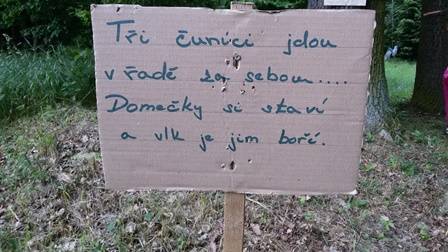 Tři čuníci jdou
v řadě za sebou....
Domečky si staví
a vlk je jim boří.